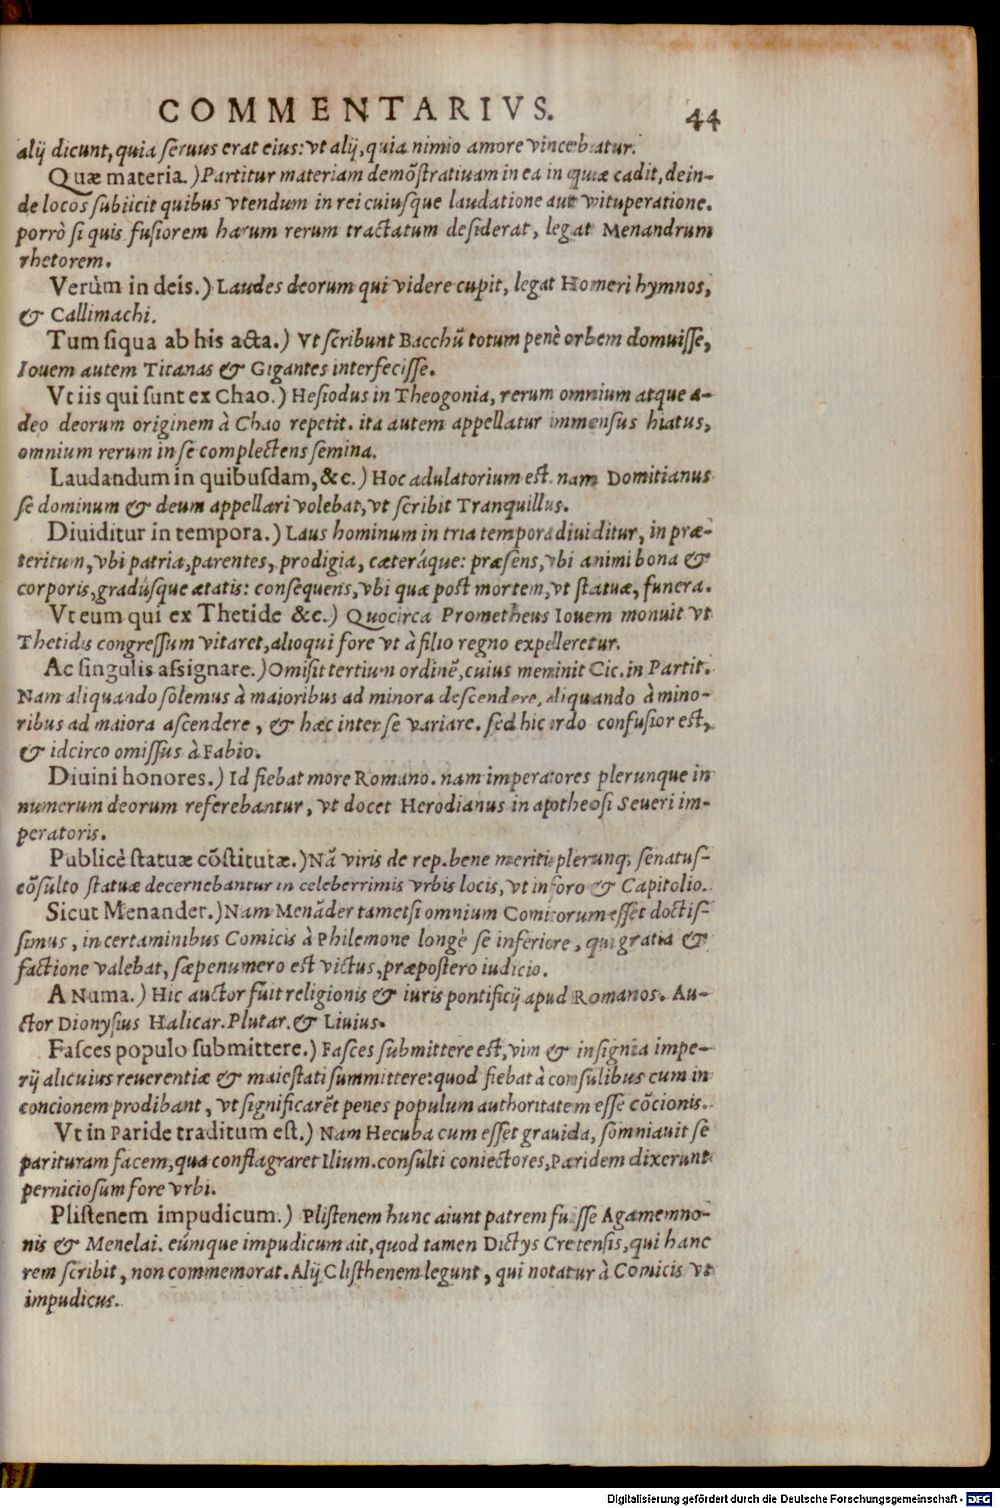 COMMENTARIVS. 44
alij dicunt, quia seruus erat eius: vt alij, quia nimio amore vincebatur.
Quæ materia.) Partitur materiam demõstratiuam in ea in quæ cadit, dein-
de locos subiicit quibus vtendum in rei cuiusque laudatione aut vituperatione.
porrò si quis fusiorem harum rerum tractatum desiderat, legat Menandrum
rhetorem.
Verùm in deis.) Laudes deorum qui videre cupit, legat Homeri hymnos,
& Callimachi.
Tum siqua ab his acta.) Vt scribunt Bacchũ totum penè orbem domuisse,
Iouem autem Titanas & Gigantes interfecisse.
Vt iis qui sunt ex Chao.) Hesiodus in Theogonia, rerum omnium atque a-
deo deorum originem à Chao repetit. ita autem appellatur immensus hiatus,
omnium rerum in se complectens semina.
Laudandum in quibusdam, &c.) Hoc adulatorium est. nam Domitianus
se dominum & deum appellari volebat, vt scribit Tranquillus.
Diuiditur in tempora.) Laus hominum in tria tempora diuiditur, in præ-
teritum, vbi patria, parentes, prodigia, cæteráque: præsens, vbi animi bona &
corporis, gradúsque ætatis: consequens, vbi quæ post mortem, vt statuæ, funera.
Vt eum qui ex Thetide &c.) Quocirca Prometheus Iouem monuit vt
Thetidis congressum vitaret, alioqui fore vt à filio regno expelleretur.
Ac singulis assignare.) Omisit tertium ordinẽ, cuius meminit Cic. in Partit.
Nam aliquando solemus à maioribus ad minora descendere, aliquando à mino-
ribus ad maiora ascendere, & hæc inter se variare. sed hic ordo confusior est,
& idcirco omissus à Fabio.
Diuini honores.) Id fiebat more Romano. nam imperatores plerunque in
numerum deorum referebantur, vt docet Herodianus in apotheosi Seueri im-
peratoris.
Publicè statuæ cõstitutæ.) Nã viris de rep. bene meritis plerunq; senatus-
cõsulto statuæ decernebantur in celeberrimis vrbis locis, vt in foro & Capitolio.
Sicut Menander.) Nam Menãder tametsi omnium Comicorum esset doctis-
simus, in certaminibus Comicis à Philemone longè se inferiore, qui gratia &
factione valebat, sæpenumero est victus, præpostero iudicio.
A Numa.) Hic auctor fuit religionis & iuris pontificij apud Romanos. Au-
ctor Dionysius Halicar. Plutar. & Liuius.
Fasces populo submittere.) Fasces submittere est, vim & insignia impe-
rij alicuius reuerentiæ & maiestati summittere: quod fiebat à consulibus cum in
concionem prodibant, vt significarẽt penes populum authoritatem esse cõcionis.
Vt in Paride traditum est.) Nam Hecuba cum esset grauida, somniauit se
parituram facem, qua conflagraret Ilium. consulti coniectores, Paridem dixerunt
perniciosum fore vrbi.
Plistenem impudicum.) Plistenem hunc aiunt patrem fuisse Agamemno-
nis & Menelai. eúmque impudicum ait, quod tamen Dictys Cretensis, qui hanc
rem scribit, non commemorat. Alij Clisthenem legunt, qui notatur à Comicis vt
impudicus.
Digitalisierung gefördert durch die Deutsche Forschungsgemeinschaft - DFG